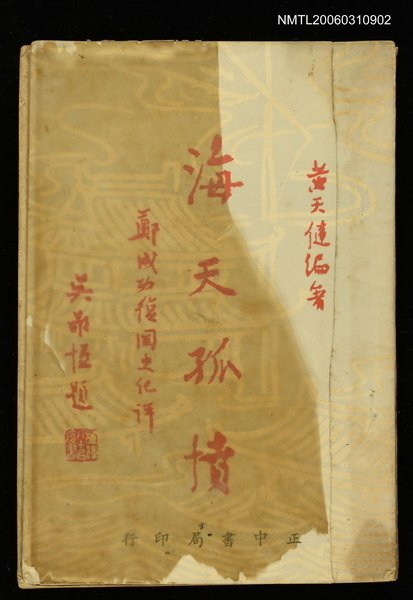 NMTL20060310902
黃天健編著
海天孤憤
鄭成功復國史化評
吳敬恆題
正中書局印行